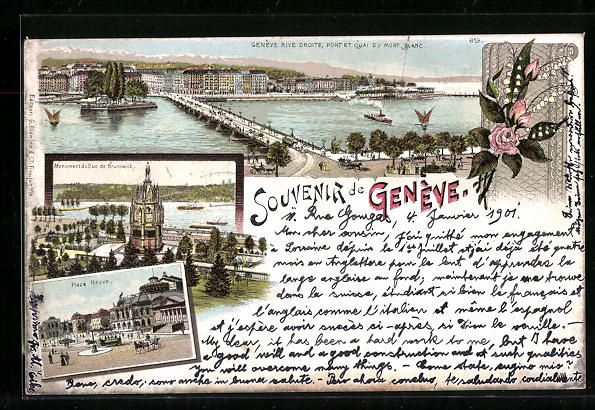 GENÈVE RIVE DROITE, PONT ET QUAI DU MONT BLANC.
Monument du Duc de Brunswick.
SOUVENIR de GENÈVE.
Place Neuve.
4. Janvier 1901.
Mon cher cousin, j'ai quitté mon engagement
à Lorraine depuis le 1er Juillet et j'ai déjà été quatre
mois en Angleterre pour le but d'apprendre la
langue anglaise au fond; maintenant je me trouve
dans la suisse, étudiant si bien le français et
l'anglais comme l'italien et même l'espagnol
et j'espère avoir succès ci-après, si Dieu le veuille. —
My dear, it has been a hard work to me, but I have
a good will and a good construction and at such qualities
you will overcome many things. — Come state, cugino mio?
Bene, credo, sono anche in buona salute. — Pero ahora concluo, te saludando cordialmente